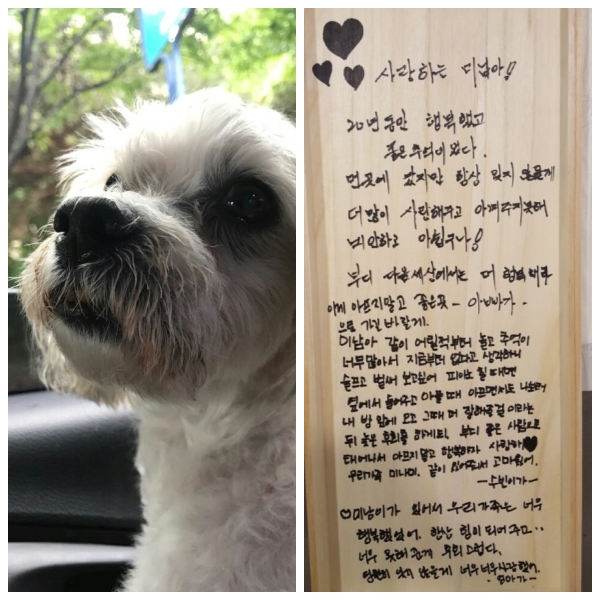 사랑하는 미남아!
20년동안 행복했고
좋은추억이였다.
먼곳에 갔지만 항상 잊지 않을게
더많이 사랑해주고 아껴주지못해
미안하고 아쉽구나!
부디 다음세상에서는 더
이제 아프지말고 좋은곳 - 아빠가 -
으로 가길 바랄게.
미남아 같이 어릴적부터 놀고 추억이
너무많아서 지금부터 없다고 생각하니
슬프고 벌써 보고싶어 피아노 칠때면
옆에서 들어주고 아플 때 아프면서도 나보러
내 방 앞에 오고 그때 더 잘해줄걸 이라는
뒤 늦은 후회를 하게돼. 부디 좋은 사람으로
태어나서 아프지말고 행복하자 사랑해
우리가족 미나미. 같이 있어줘서 고마웠어.
- 수빈이가 -
미남이가 있어서 우리가족은 너무
행복했었어. 항상 힘이 되어주고..
너무 못해준게 후회스럽다.
영원히 잊지 않을게 너무너무사랑했어.
- 엄마가 -